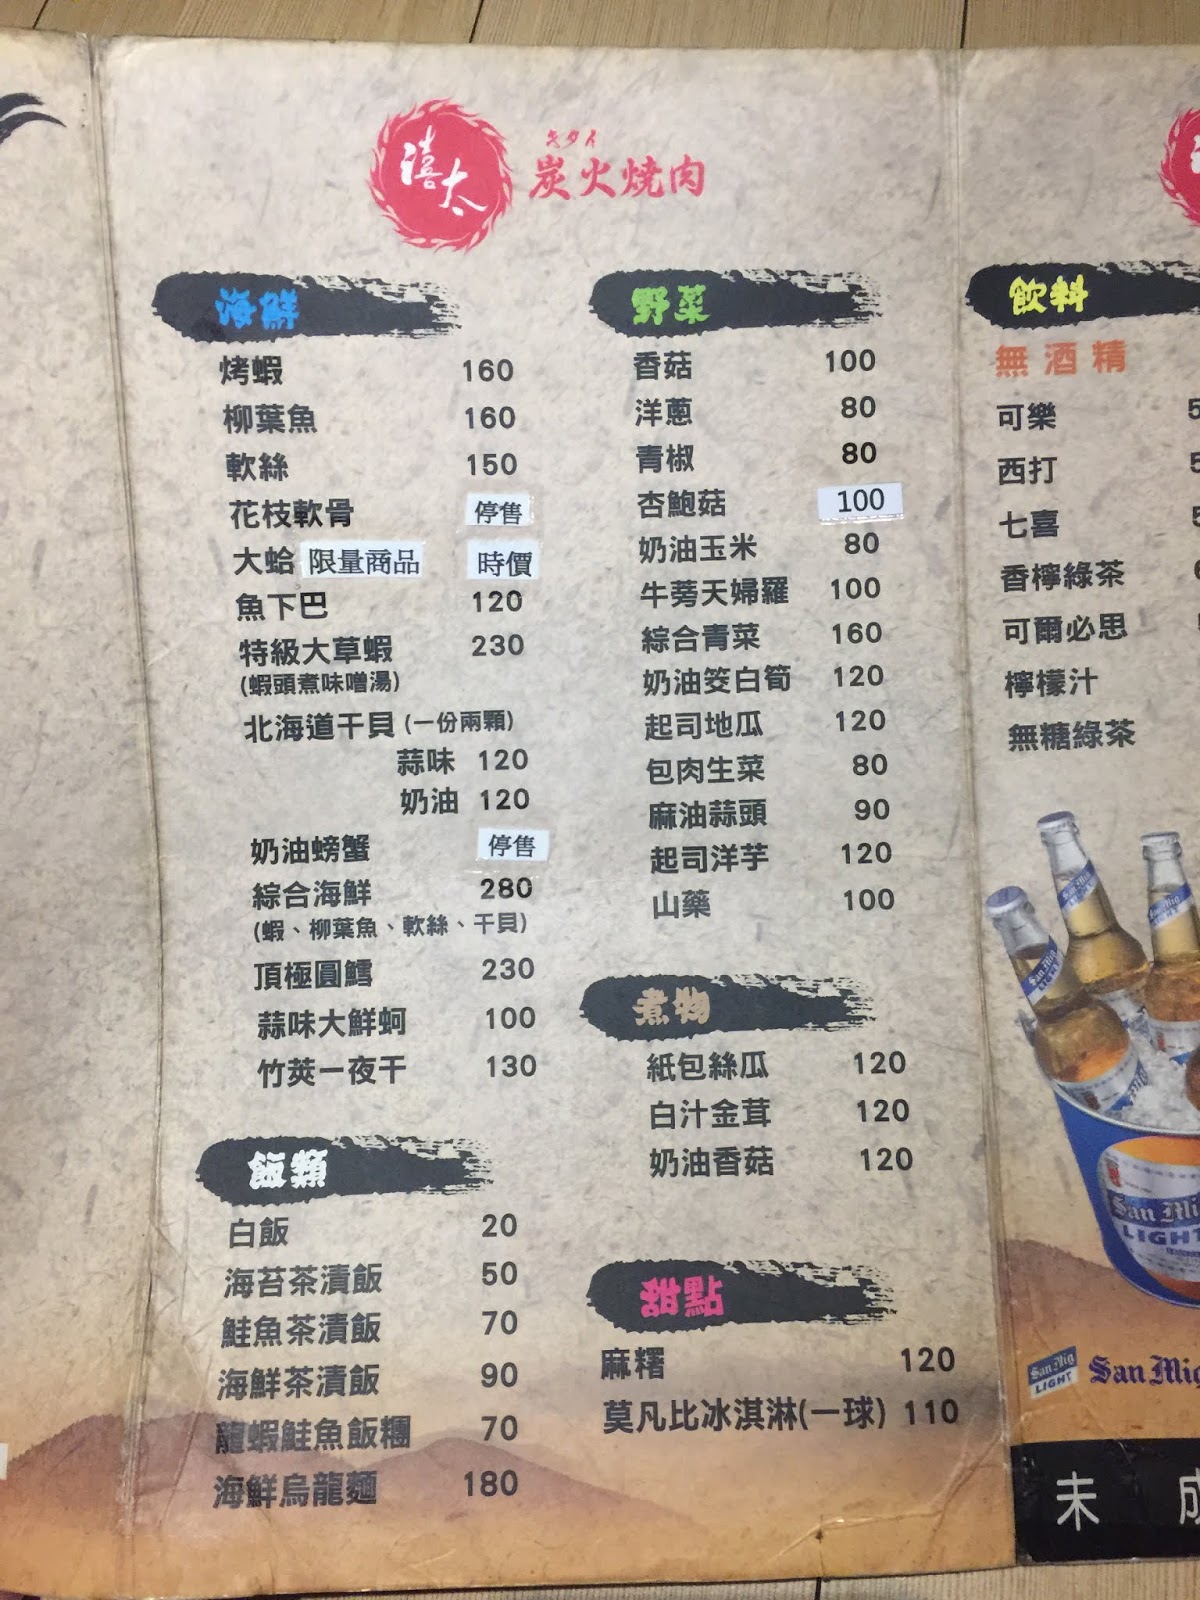 禧太
キタイ
炭火燒肉
海鮮
烤蝦 160
柳葉魚 160
軟絲 150
花枝軟骨 停售
大蛤 限量商品 時價
魚下巴 120
特級大草蝦 230
(蝦頭煮味噌湯)
北海道干貝 (一份兩顆)
蒜味 120
奶油 120
奶油螃蟹 停售
綜合海鮮 280
(蝦、柳葉魚、軟絲、干貝)
頂極圓鱈 230
蒜味大鮮蚵 100
竹莢一夜干 130
飯類
白飯 20
海苔茶漬飯 50
鮭魚茶漬飯 70
海鮮茶漬飯 90
龍蝦鮭魚飯糰 70
海鮮烏龍麵 180
野菜
香菇 100
洋蔥 80
青椒 80
杏鮑菇 100
奶油玉米 80
牛蒡天婦羅 100
綜合青菜 160
奶油筊白筍 120
起司地瓜 120
包肉生菜 80
麻油蒜頭 90
起司洋芋 120
山藥 100
煮物
紙包絲瓜 120
白汁金茸 120
奶油香菇 120
甜點
麻糬 120
莫凡比冰淇淋(一球) 110
飲料
無酒精
可樂 5
西打 5
七喜 5
香檸綠茶 6
可爾必思
檸檬汁
無糖綠茶
San Mig
San Mig
San Mig
San Mi
LIGHT
San Mig
LIGHT
San Mig
未 成